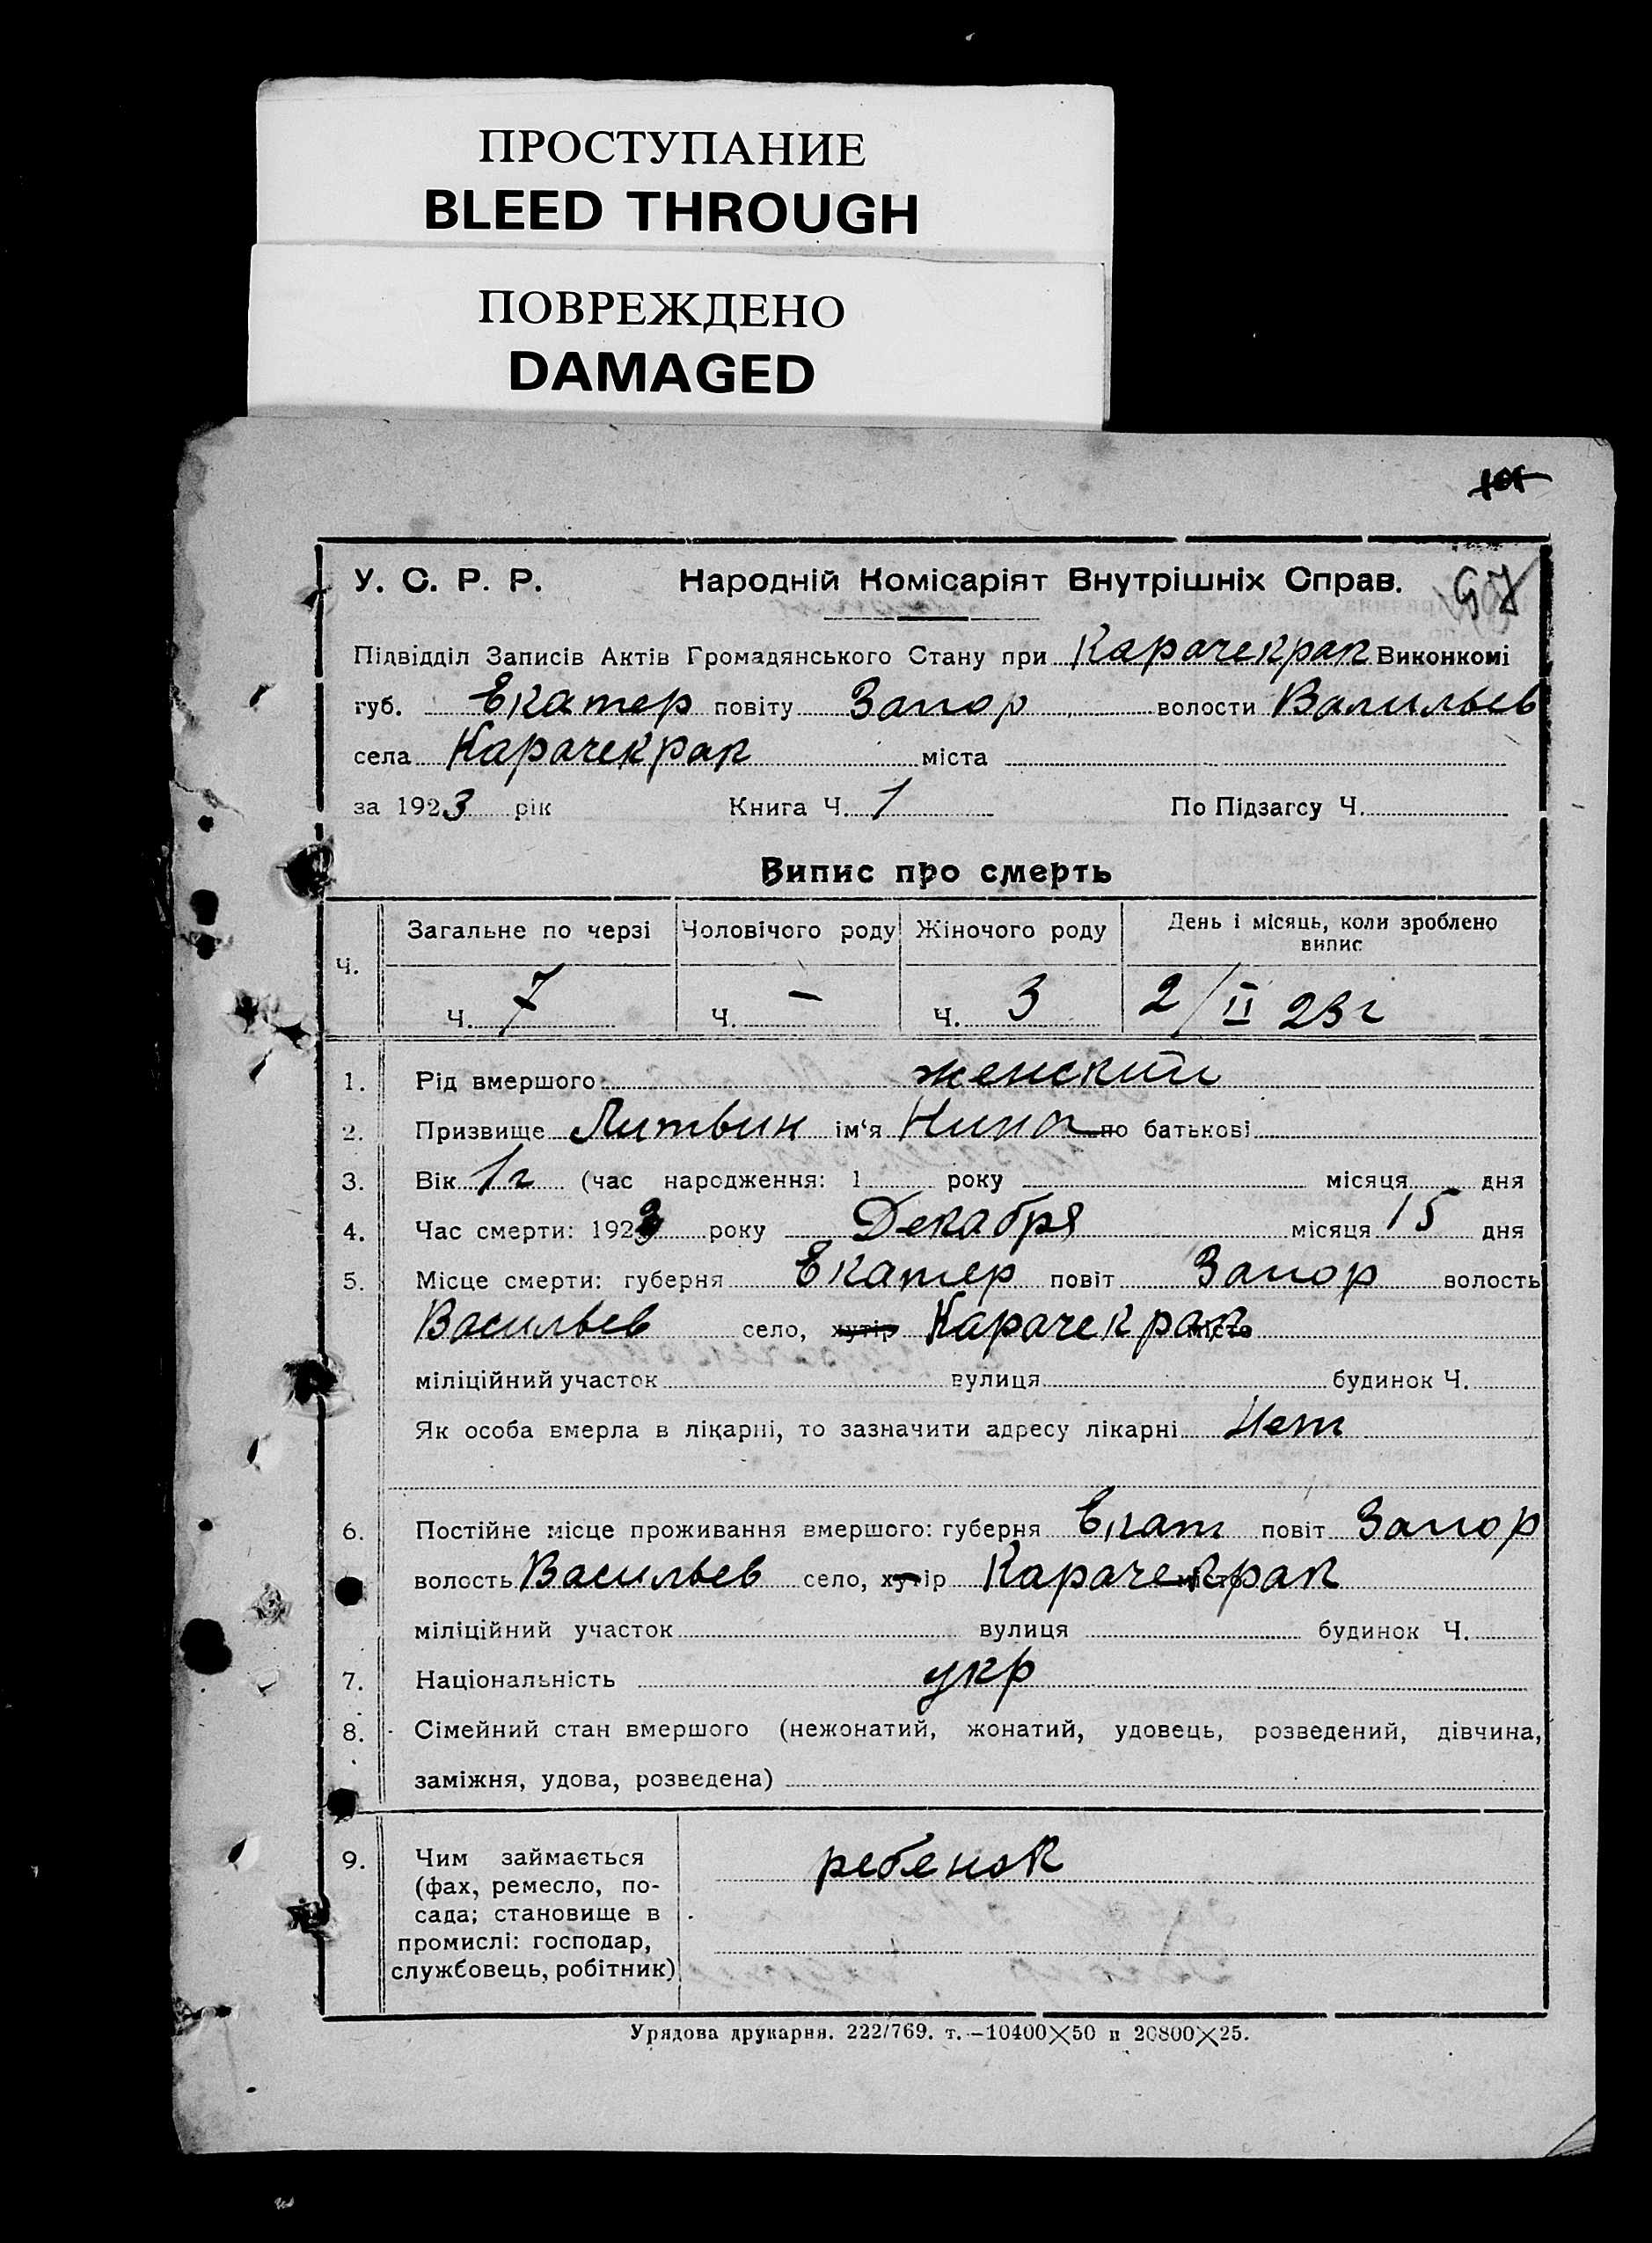 ПРОСТУПАНИЕ
BLEED THROUGH
ПОВРЕЖДЕНО
DAMAGED
97
У. С. Р. Р. Народній Комісаріят Внутрішніх Справ.
Підвідділ Записів Актів Громадянського Стану при Карачекрак Виконкомі
губ. Екатер повіту Запор волости Васильев
села Карачекрак міста
за 1923 рік Книга Ч. 1 По Підзагсу Ч.
Випис про смерть
Ч. Загальне по черзі Чоловічого роду Жіночого роду День і місяць, коли зроблено
випис
Ч. 7 Ч. — Ч. 3 2/II 23 г
1. Рід вмершого женский
2. Призвище Литвин ім‘я Нина по батькові
3. Вік 1 г (час народження: 1 року місяця дня
4. Час смерти: 1923 року Декабря місяця 15 дня
5. Місце смерти: губерня Екатер повіт Запор волость
Васильев село, хутір Карачекрак місто
міліційний участок вулиця будинок Ч.
Як особа вмерла в лікарні, то зазначити адресу лікарні Нет
6. Постійне місце проживання вмершого: губерня Екат повіт Запор
волость Васильев село, хутір Карачекрак місто
міліційний участок вулиця будинок Ч.
7. Національність укр
8. Сімейний стан вмершого (нежонатий, жонатий, удовець, розведений, дівчина,
заміжня, удова, розведена)
9. Чим займається ребенок
(фах, ремесло, по-
сада; становище в
промислі: господар,
службовець, робітник)
Урядова друкарня. 222/769. т.—10400×50 п 20800×25.